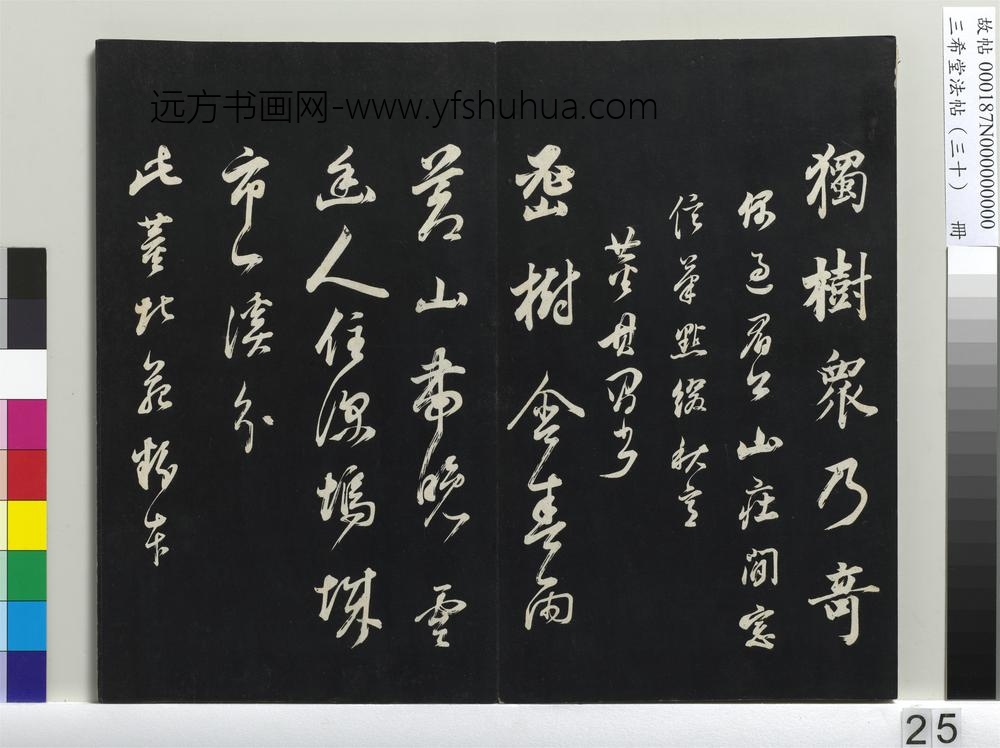 远方书画网-www.yfshuhua.com
獨樹衆乃奇
偶過眉公山莊閒窓
信筆點綴秋
董其昌書
密樹含春雨
蒼山帶晚雲
幽人住深塢城
市一溪分
此董北苑粉本
故帖 000187N000000000
三希堂法帖(三十) 冊
25